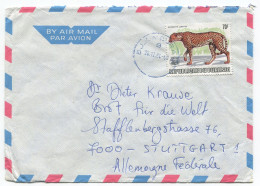 BY AIR MAIL
PAR AVION
70F
REPUBLIQUE DU BURUNDI
Dr Dieter Krause
Brot für die Welt
Stafflenbergstrasse 76
7000 - STUTTGART 1
Allemagne Fédérale